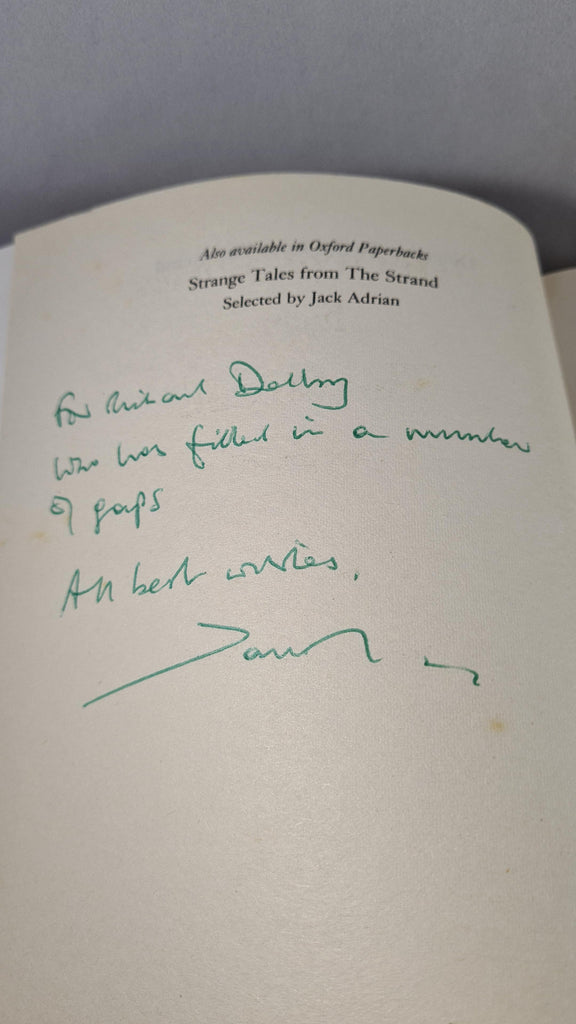 Also available in Oxford Paperbacks
Strange Tales from The Strand
Selected by Jack Adrian
For Richard Dalby
who has filled in a number
of gaps
All best wishes,